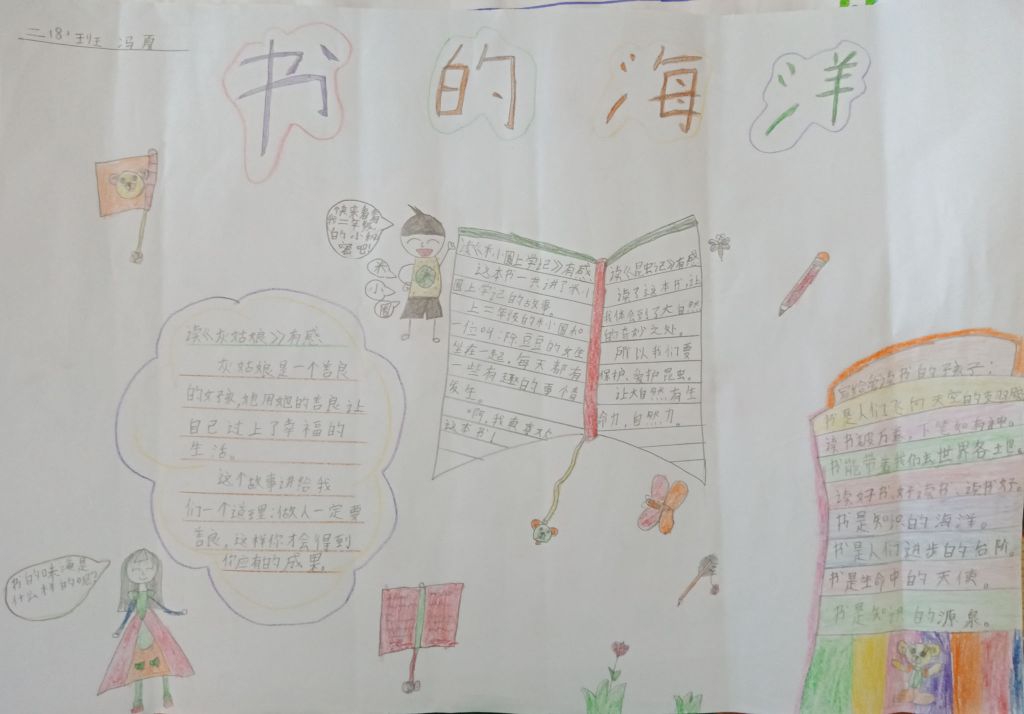 二18·班 冯夏
书的海洋
快来看看
我二年级
的小秘
密吧!
米
小
圈
读《米小圈上学记》有感
这本书一共讲了米小
圈上学记的故事。
上二年级的米小圈和
一位叫:徐豆豆的女生
坐在一起,每天都有
一些有趣的事情
发生。
这本书!
读《昆虫记》有感
读了这本书,让
我体会到了大自然
的奇妙之处。
所以我们要
保护、爱护昆虫。
让大自然有生
命力,自然力。
读《灰姑娘》有感
灰姑娘是一个善良
的女孩,她用她的善良让
自己过上了幸福的
生活。
这个故事讲给我
们一个道理:做人一定要
善良,这样你才会得到
你应有的成果。
书的味道是
什么样的呢?
写给爱读书的孩子:
书是人们飞向天空的
读书破万卷,下笔如有神。
书能带着我们去世界各土也。
读好书、好读书、读书好。
书是知识的海洋。
书是人们进步的台阶。
书是生命中的天使。
书是知识的源泉。